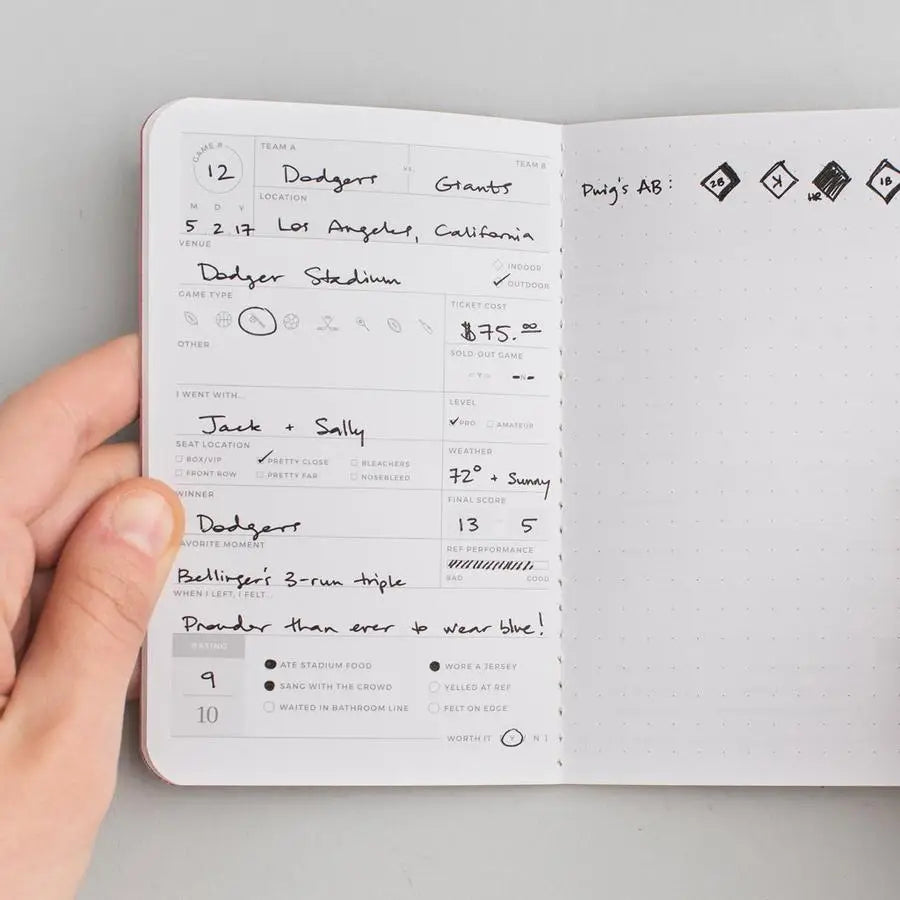 GAME #
12
TEAM A
Dodgers
VS.
TEAM B
Giants
M D Y
5 2 17
LOCATION
Los Angeles, California
VENUE
Dodger Stadium
INDOOR
OUTDOOR
GAME TYPE
OTHER
TICKET COST
$75.00
SOLD-OUT GAME
Y N
I WENT WITH...
Jack + Sally
LEVEL
PRO AMATEUR
SEAT LOCATION
BOX/VIP PRETTY CLOSE BLEACHERS
FRONT ROW PRETTY FAR NOSEBLEED
WEATHER
72° + Sunny
WINNER
Dodgers
FINAL SCORE
13 5
FAVORITE MOMENT
Bellinger's 3-run triple
REF PERFORMANCE
BAD GOOD
WHEN I LEFT, I FELT...
Prouder than ever to wear blue!
RATING
9
10
ATE STADIUM FOOD WORE A JERSEY
SANG WITH THE CROWD YELLED AT REF
WAITED IN BATHROOM LINE FELT ON EDGE
WORTH IT [ Y | N ]
Puig's AB: 2B K HR 1B